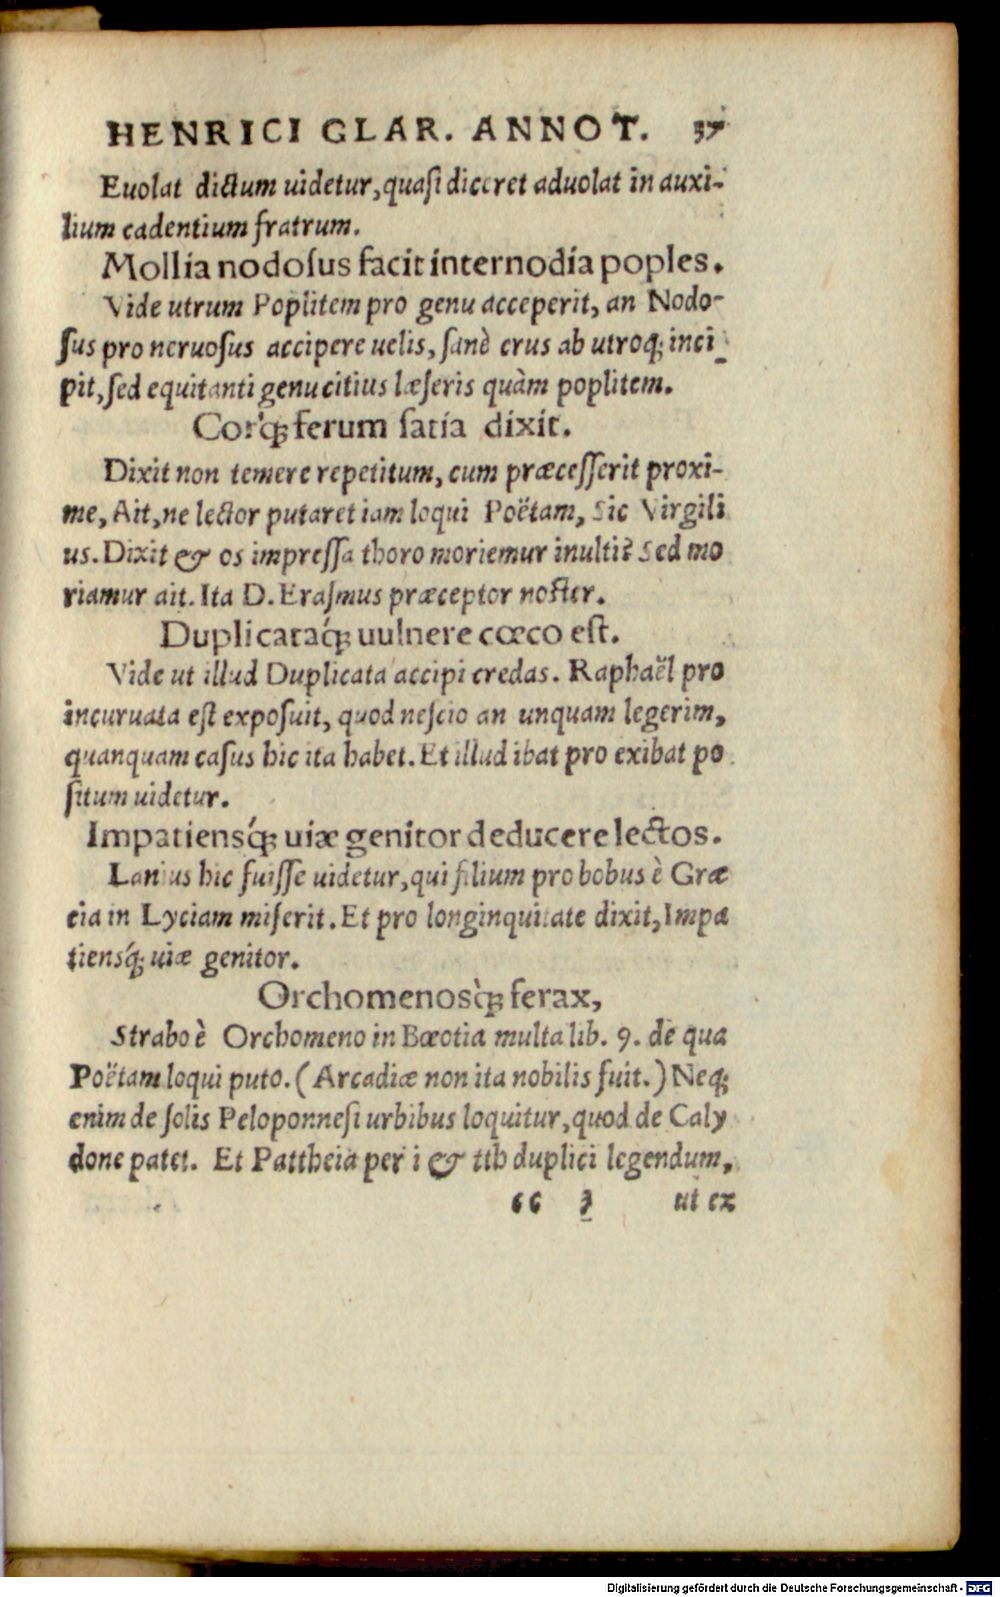 HENRICI GLAR. ANNOT. 37
Euolat dictum uidetur, quasi diceret aduolat in auxi-
lium cadentium fratrum.
Mollia nodosus facit internodia poples.
Vide utrum Poplitem pro genu acceperit, an Nodo-
sus pro neruosus accipere uelis, sanè crus ab utroq; inci
pit, sed equitanti genu citius læseris quàm poplitem.
Corq́; ferum satia dixit.
Dixit non temere repetitum, cum præcesserit proxi-
me, Ait, ne lector putaret iam loqui Poëtam, Sic Virgili
us. Dixit & os impressa thoro moriemur inulti? Sed mo
riamur ait. Ita D. Erasmus præceptor noster.
Duplicataq́; uulnere cœco est.
Vide ut illud Duplicata accipi credas. Raphaël pro
incuruata est exposuit, quod nescio an unquam legerim,
quanquam casus hic ita habet. Et illud ibat pro exibat po
situm uidetur.
Impatiensq́; uiæ genitor deducere lectos.
Lanius hic fuisse uidetur, qui filium pro bobus è Græ
cia in Lyciam miserit. Et pro longinquitate dixit, Impa
tiensq́; uiæ genitor.
Orchomenosq̀; ferax,
Strabo è Orchomeno in Bœotia multa lib. 9. de qua
Poëtam loqui puto. (Arcadiæ non ita nobilis fuit.) Neq;
enim de solis Peloponnesi urbibus loquitur, quod de Caly
done patet. Et Pattheia per i & tth duplici legendum,
cc 3 ut ex
Digitalisierung gefördert durch die Deutsche Forschungsgemeinschaft - DFG